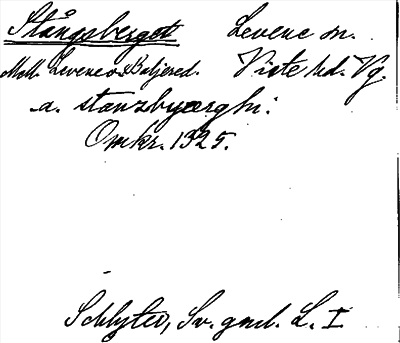 Stångsberget Levene sn.
Mell. Levene o. Baljered. Viste hd. Vg.
a. stanzbyærghi:
Omkr. 1325.
Schlyter, Sv. gml. L. I